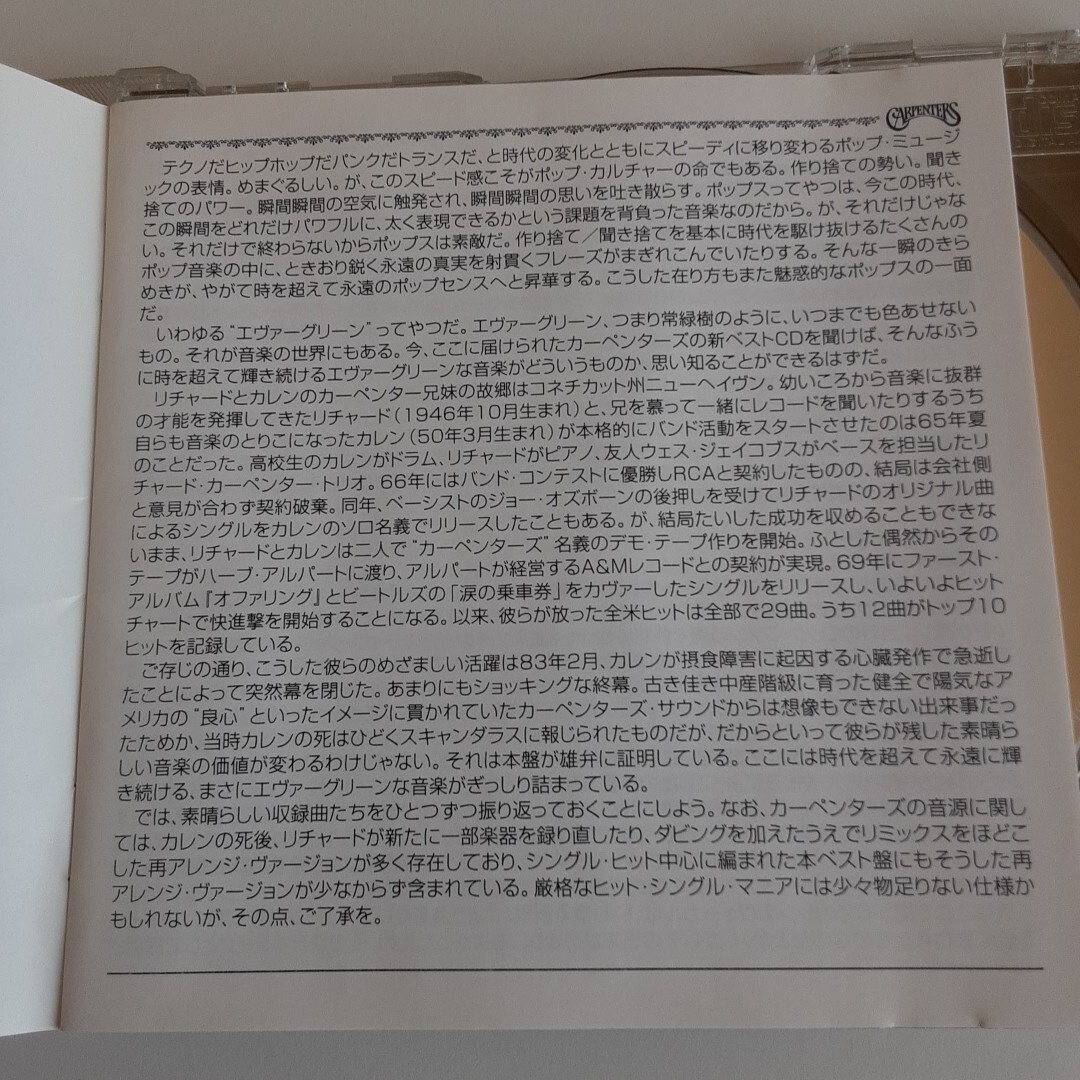 CARPENTERS
テクノだヒップホップだパンクだトランスだ、と時代の変化とともにスピーディに移り変わるポップ・ミュージ
ックの表情。めまぐるしい。が、このスピード感こそがポップ・カルチャーの命でもある。作り捨ての勢い。聞き
捨てのパワー。瞬間瞬間の空気に触発され、瞬間瞬間の思いを吐き散らす。ポップスってやつは、今この時代、
この瞬間をどれだけパワフルに、太く表現できるかという課題を背負った音楽なのだから。が、それだけじゃな
い。それだけで終わらないからポップスは素敵だ。作り捨て／聞き捨てを基本に時代を駆け抜けるたくさんの
ポップ音楽の中に、ときおり鋭く永遠の真実を射貫くフレーズがまぎれこんでいたりする。そんな一瞬のきら
めきが、やがて時を超えて永遠のポップセンスへと昇華する。こうした在り方もまた魅惑的なポップスの一面
だ。
いわゆる“エヴァーグリーン”ってやつだ。エヴァーグリーン、つまり常緑樹のように、いつまでも色あせない
もの。それが音楽の世界にもある。今、ここに届けられたカーペンターズの新ベストCDを聞けば、そんなふう
に時を超えて輝き続けるエヴァーグリーンな音楽がどういうものか、思い知ることができるはずだ。
リチャードとカレンのカーペンター兄妹の故郷はコネチカット州ニューヘイヴン。幼いころから音楽に抜群
の才能を発揮してきたリチャード（1946年10月生まれ）と、兄を慕って一緒にレコードを聞いたりするうち
自らも音楽のとりこになったカレン（50年3月生まれ）が本格的にバンド活動をスタートさせたのは65年夏
のことだった。高校生のカレンがドラム、リチャードがピアノ、友人ウェス・ジェイコブスがベースを担当したリ
チャード・カーペンター・トリオ。66年にはバンド・コンテストに優勝しRCAと契約したものの、結局は会社側
と意見が合わず契約破棄。同年、ベーシストのジョー・オズボーンの後押しを受けてリチャードのオリジナル曲
によるシングルをカレンのソロ名義でリリースしたこともある。が、結局たいした成功を収めることもできな
いまま、リチャードとカレンは二人で“カーペンターズ”名義のデモ・テープ作りを開始。ふとした偶然からその
テープがハーブ・アルパートに渡り、アルパートが経営するA&Mレコードとの契約が実現。69年にファースト・
アルバム『オファリング』とビートルズの「涙の乗車券」をカヴァーしたシングルをリリースし、いよいよヒット
チャートで快進撃を開始することになる。以来、彼らが放った全米ヒットは全部で29曲。うち12曲がトップ10
ヒットを記録している。
ご存じの通り、こうした彼らのめざましい活躍は83年2月、カレンが摂食障害に起因する心臓発作で急逝し
たことによって突然幕を閉じた。あまりにもショッキングな終幕。古き佳き中産階級に育った健全で陽気なア
メリカの“良心”といったイメージに貫かれていたカーペンターズ・サウンドからは想像もできない出来事だっ
たためか、当時カレンの死はひどくスキャンダラスに報じられたものだが、だからといって彼らが残した素晴ら
しい音楽の価値が変わるわけじゃない。それは本盤が雄弁に証明している。ここには時代を超えて永遠に輝
き続ける、まさにエヴァーグリーンな音楽がぎっしり詰まっている。
では、素晴らしい収録曲たちをひとつずつ振り返っておくことにしよう。なお、カーペンターズの音源に関し
ては、カレンの死後、リチャードが新たに一部楽器を録り直したり、ダビングを加えたうえでリミックスをほどこ
した再アレンジ・ヴァージョンが多く存在しており、シングル・ヒット中心に編まれた本ベスト盤にもそうした再
アレンジ・ヴァージョンが少なからず含まれている。厳格なヒット・シングル・マニアには少々物足りない仕様か
もしれないが、その点、ご了承を。